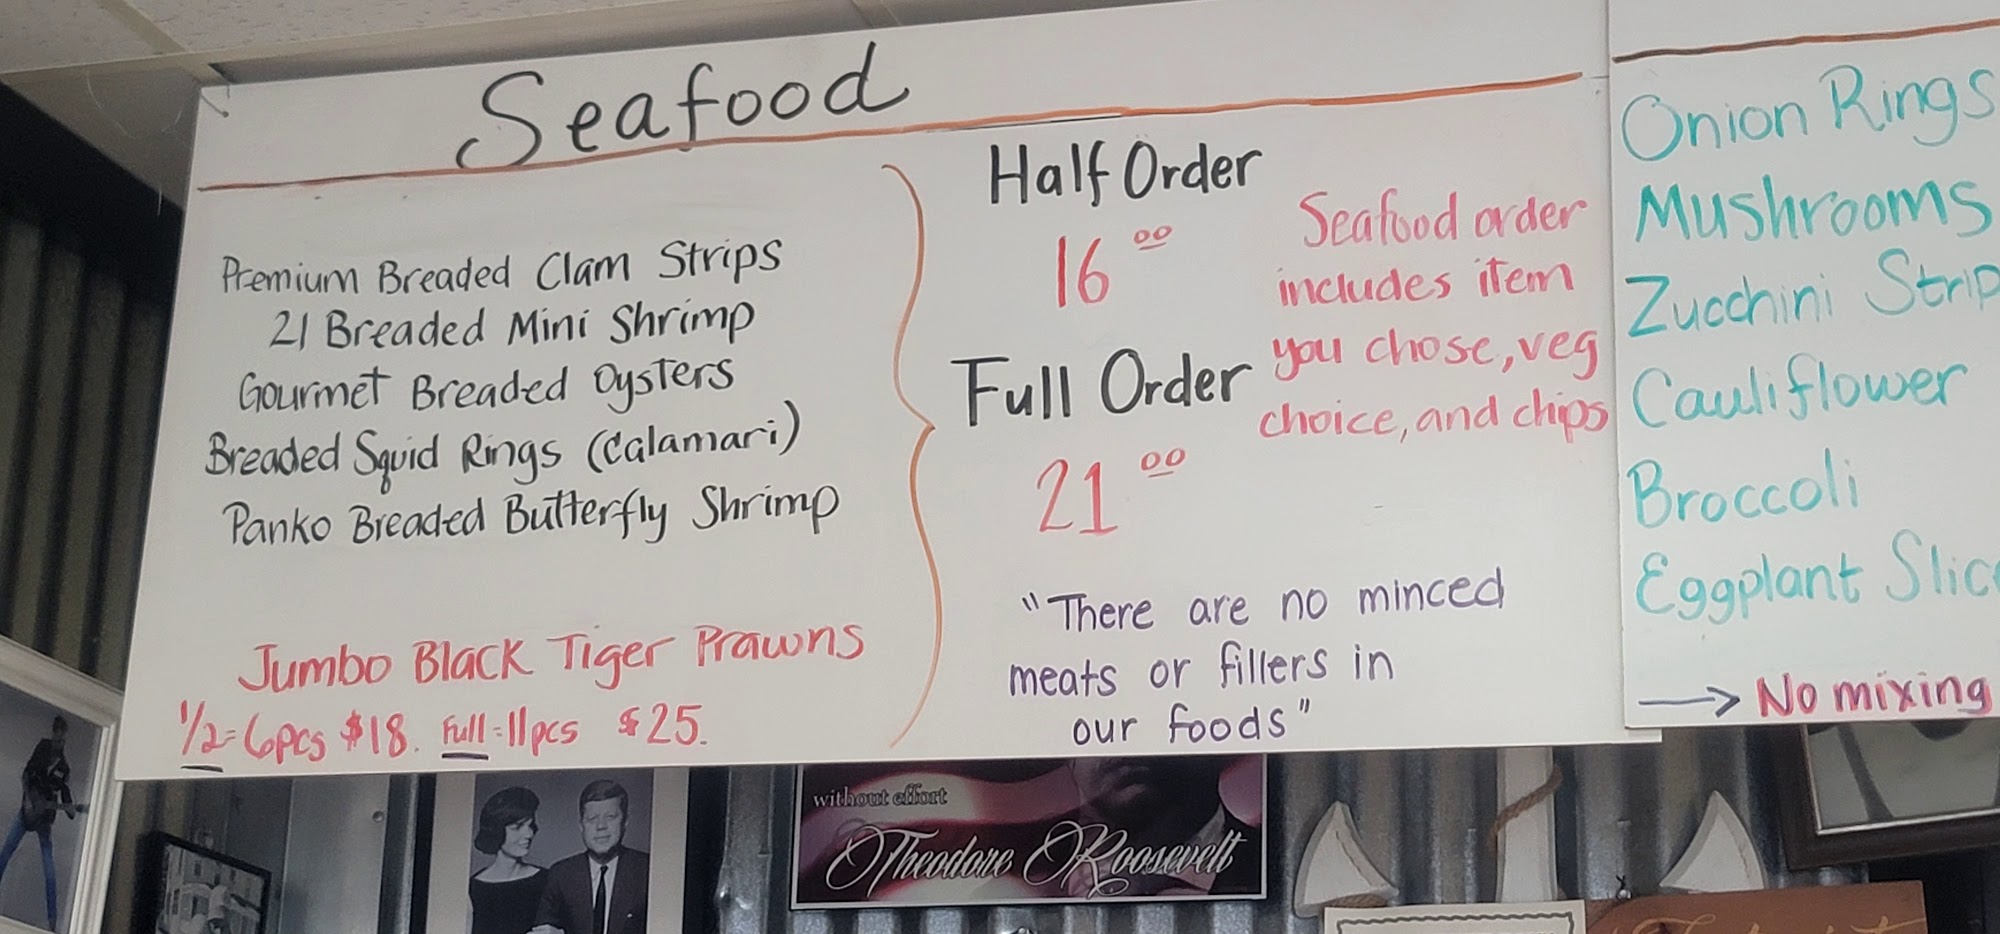 Seafood
Premium Breaded Clam Strips
21 Breaded Mini Shrimp
Gourmet Breaded Oysters
Breaded Squid Rings (Calamari)
Panko Breaded Butterfly Shrimp
Jumbo Black Tiger Prawns
1/2 = 6pcs $18. Full - 11pcs $25.
Half Order
16 00
Full Order
21 00
Seafood order
includes item
you chose, veg
choice, and chips
"There are no minced
meats or fillers in
our foods"
Onion Rings
Mushrooms
Zucchini Strip
Cauliflower
Broccoli
Eggplant Slic
→ No mixing
without effort
Theodore Roosevelt